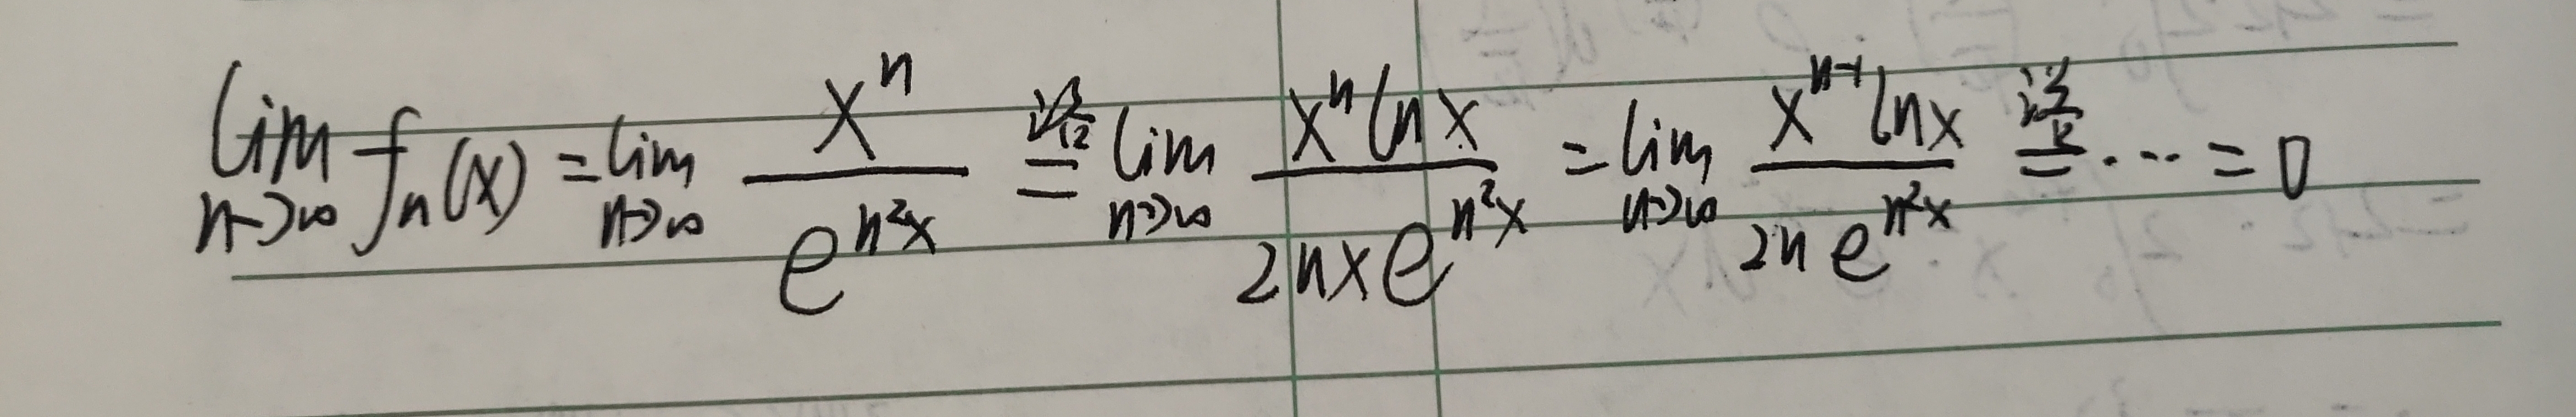 lim_{n→∞} f_n(x) = lim_{n→∞} x^n / e^{n²x} 洛(=) lim_{n→∞} x^n ln x / 2nxe^{n²x} = lim_{n→∞} x^{n-1} ln x / 2ne^{n²x} 洛(=) ··· = 0